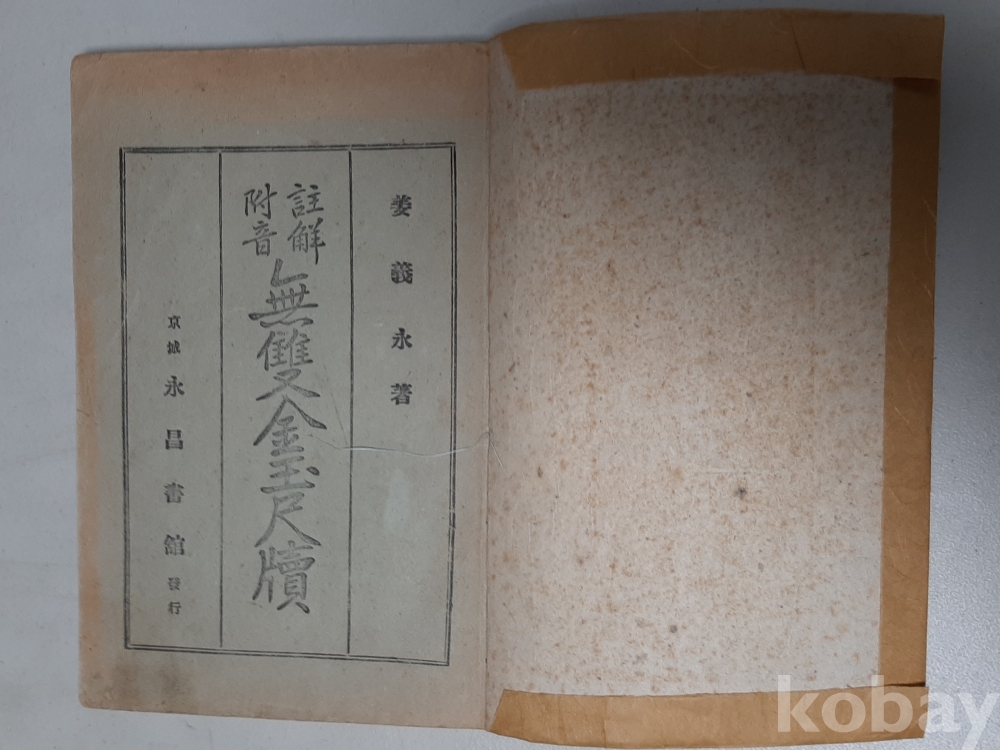 姜義永著
註解
附音
無雙金玉尺牘
京城 永昌書館 發行
kobay